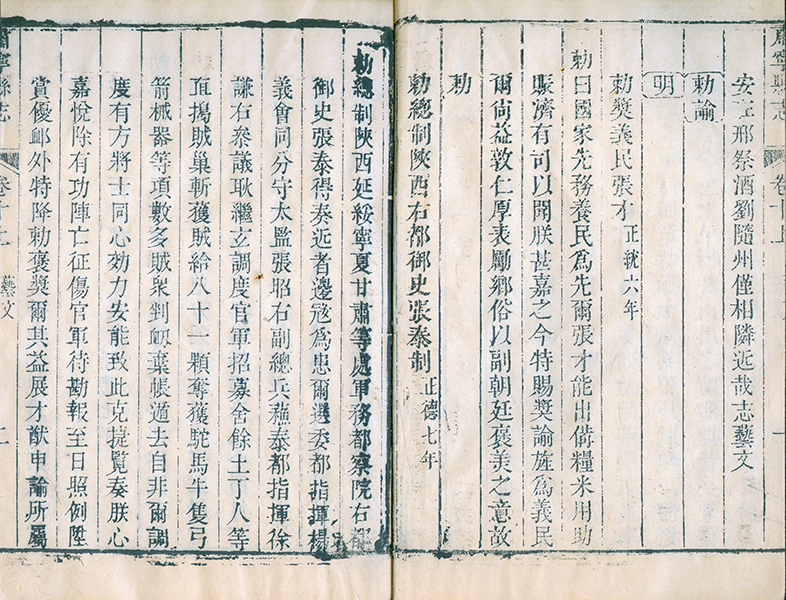 安在邢祭酒劉隨州僅相隣近哉志藝文
勅諭
明
勅獎義民張才正統六年
勅曰國家先務養民爲先爾張才能出俻糧米用助
賑濟有可以聞朕甚嘉之今特賜獎諭旌爲義民
爾尙益敦仁厚表勵鄉俗以副朝廷褒美之意故
勅
勅總制陜西右都御史張泰制正德七年
勅總制陜西延綏寧夏甘肅等處軍務都察院右都
御史張泰得奏近者邊宼爲患爾選委都指揮楊
義會同分守太監張昭右副總兵蘓泰都指揮徐
謙右叅議耿繼玄調度官軍招募舍餘土丁人等
直搗賊巢斬獲賊給八十一顆奪獲駝馬牛隻弓
箭械器等項數多賊衆
棄帳遁去自非爾調
度有方將士同心効力安能致此克捷覧奏朕心
嘉悅除有功陣亡征傷官軍待勘報至日照例陞
賞優卹外特降勅褒獎爾其益展才猷申諭所屬
肅寧縣志
卷十上
藝文
二